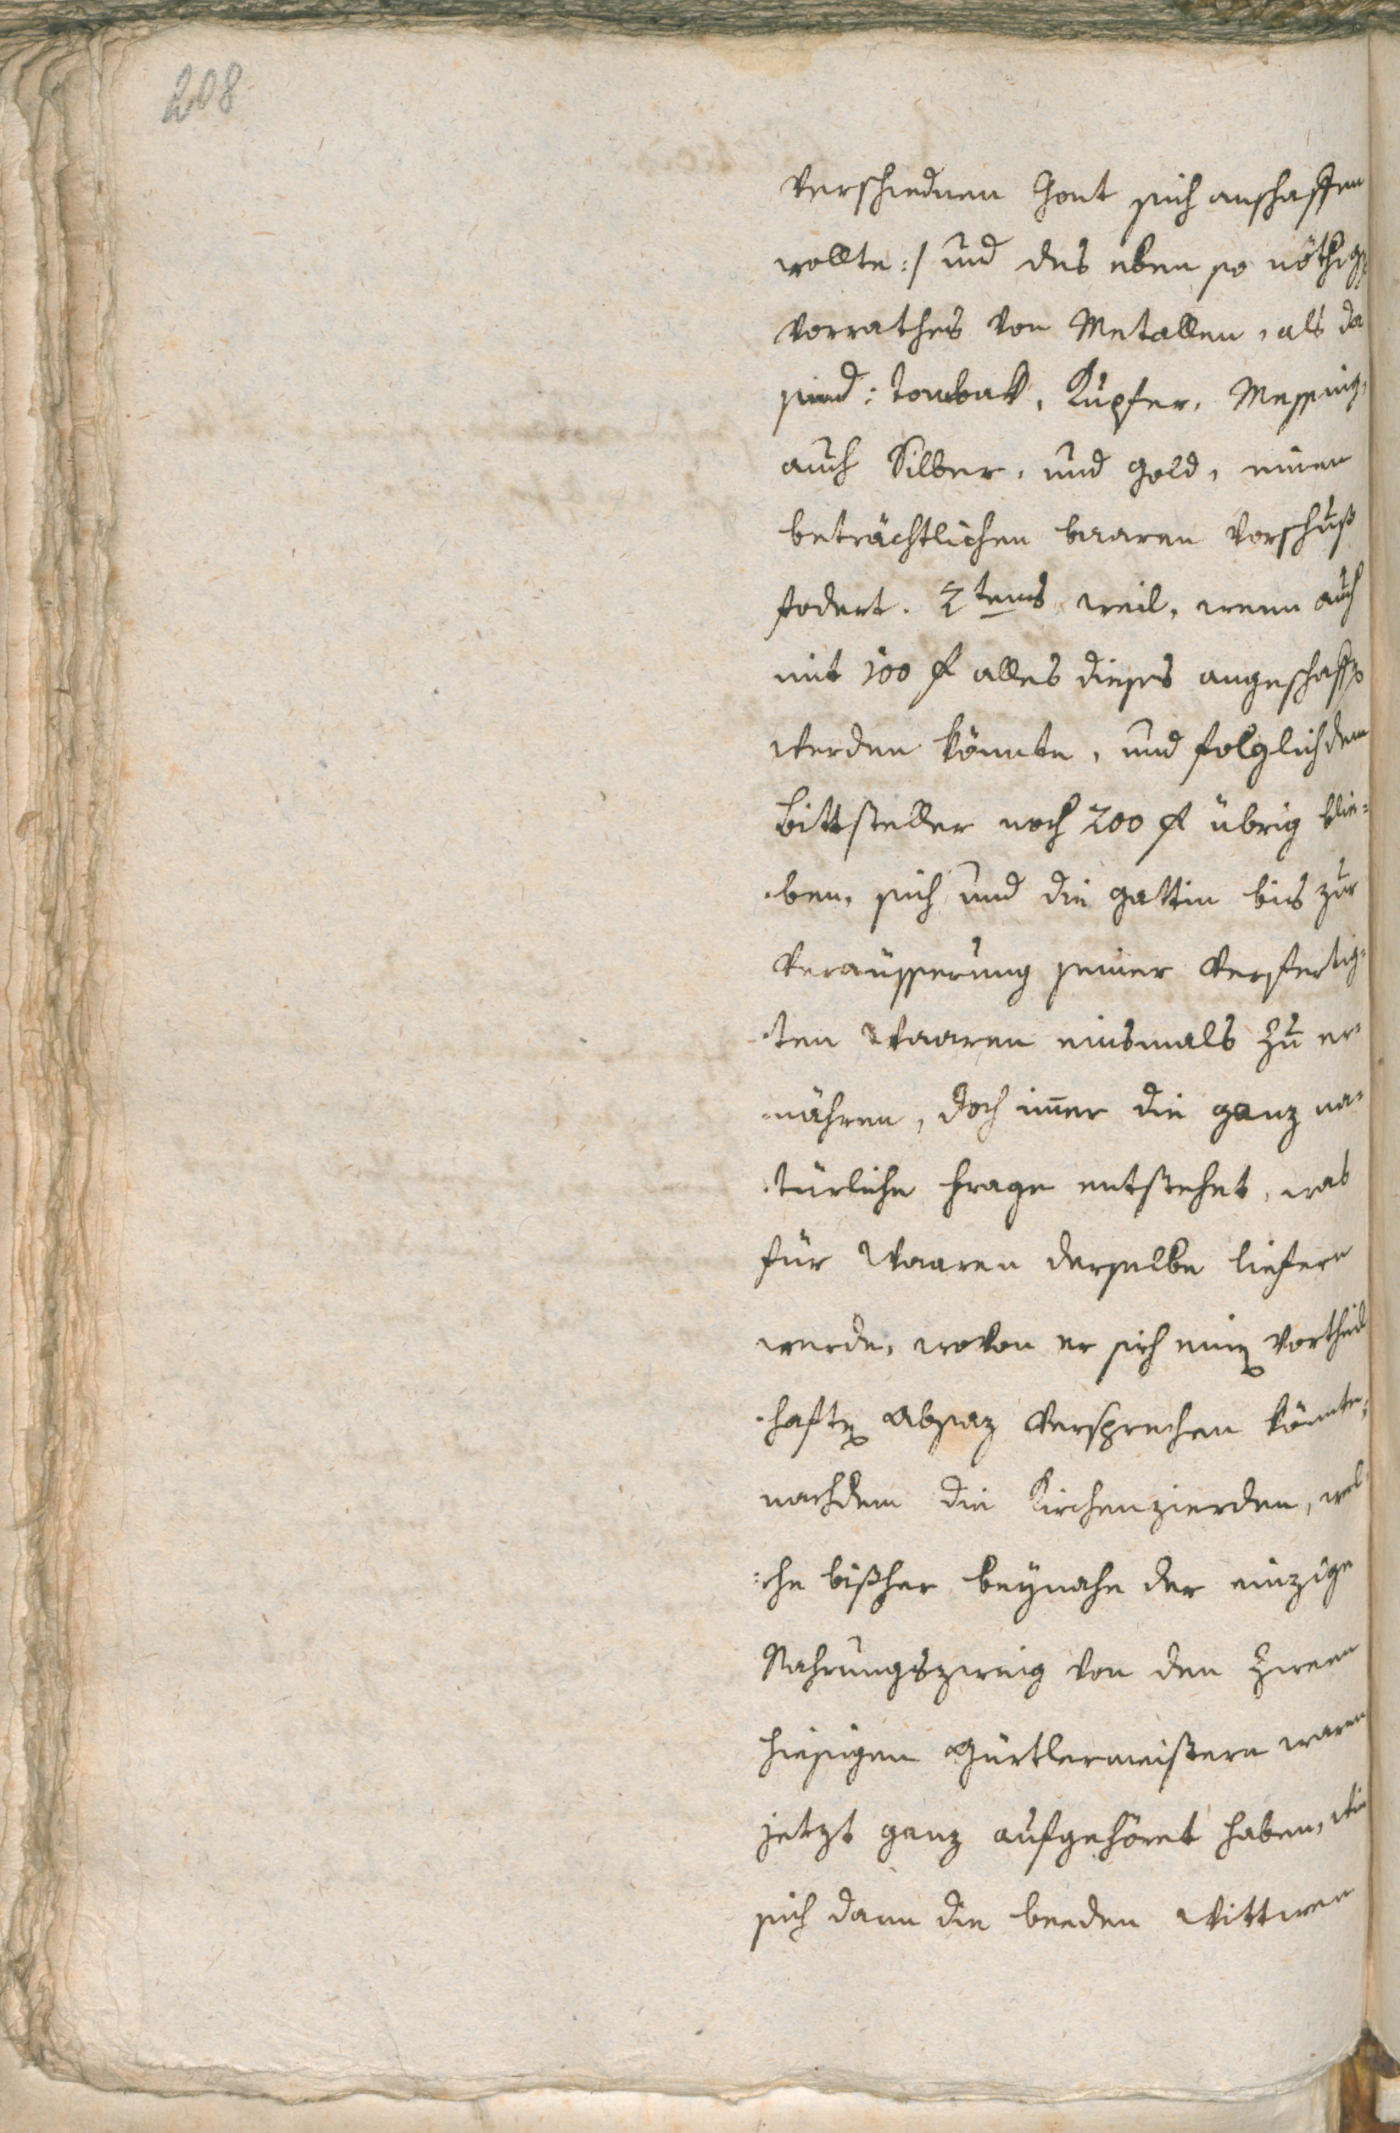 208
verschiednen Gout sich anschaffen
wollte :/ und des eben so nöthig
vorrathes von Metallen, als da
sind: Tombak, Kupfer, Messing,
auch Silber, und Gold, einen
beträchtlichen baaren Vorschuß
fodert. 2tens weil, wenn auch
mit 100 f alles dieses angeschafft
werden könnte, und folglich dem
Bittsteller noch 200 f übrig blie=
=ben, sich und die Gattin bis zur
Veräusserung seiner verfertig=
=ten Waaren einsmals zu er=
=nähren, doch im̄er die ganz na=
=türliche Frage entstehet, was
für Waaren derselbe liefern
werde, wovon er sich einen vortheil
=haften Absaz versprechen könnte,
nachdem die Kirchenzierden, wel=
=che bißher beynahe der einzige
Nahrungszweig von den zween
hiesigen Gürtlermeistern waren
jetzt ganz aufgehöret haben, wie
sich dann die beeden Wittwen